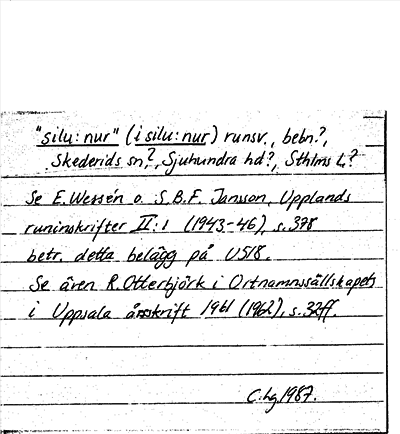 "silu:nur" (i silu:nur) runsv., bebn.?,
Skederids sn?, Sjuhundra hd?, Sthlms L.?
Se E. Wessén o. S.B.F. Jansson, Upplands
runinskrifter II:1 (1943-46), s. 378
betr. detta belägg på U518.
Se även R. Otterbjörk i Ortnamnssällskapets
i Uppsala årsskrift 1961 (1962), s. 32ff.
C:hg. 1987.